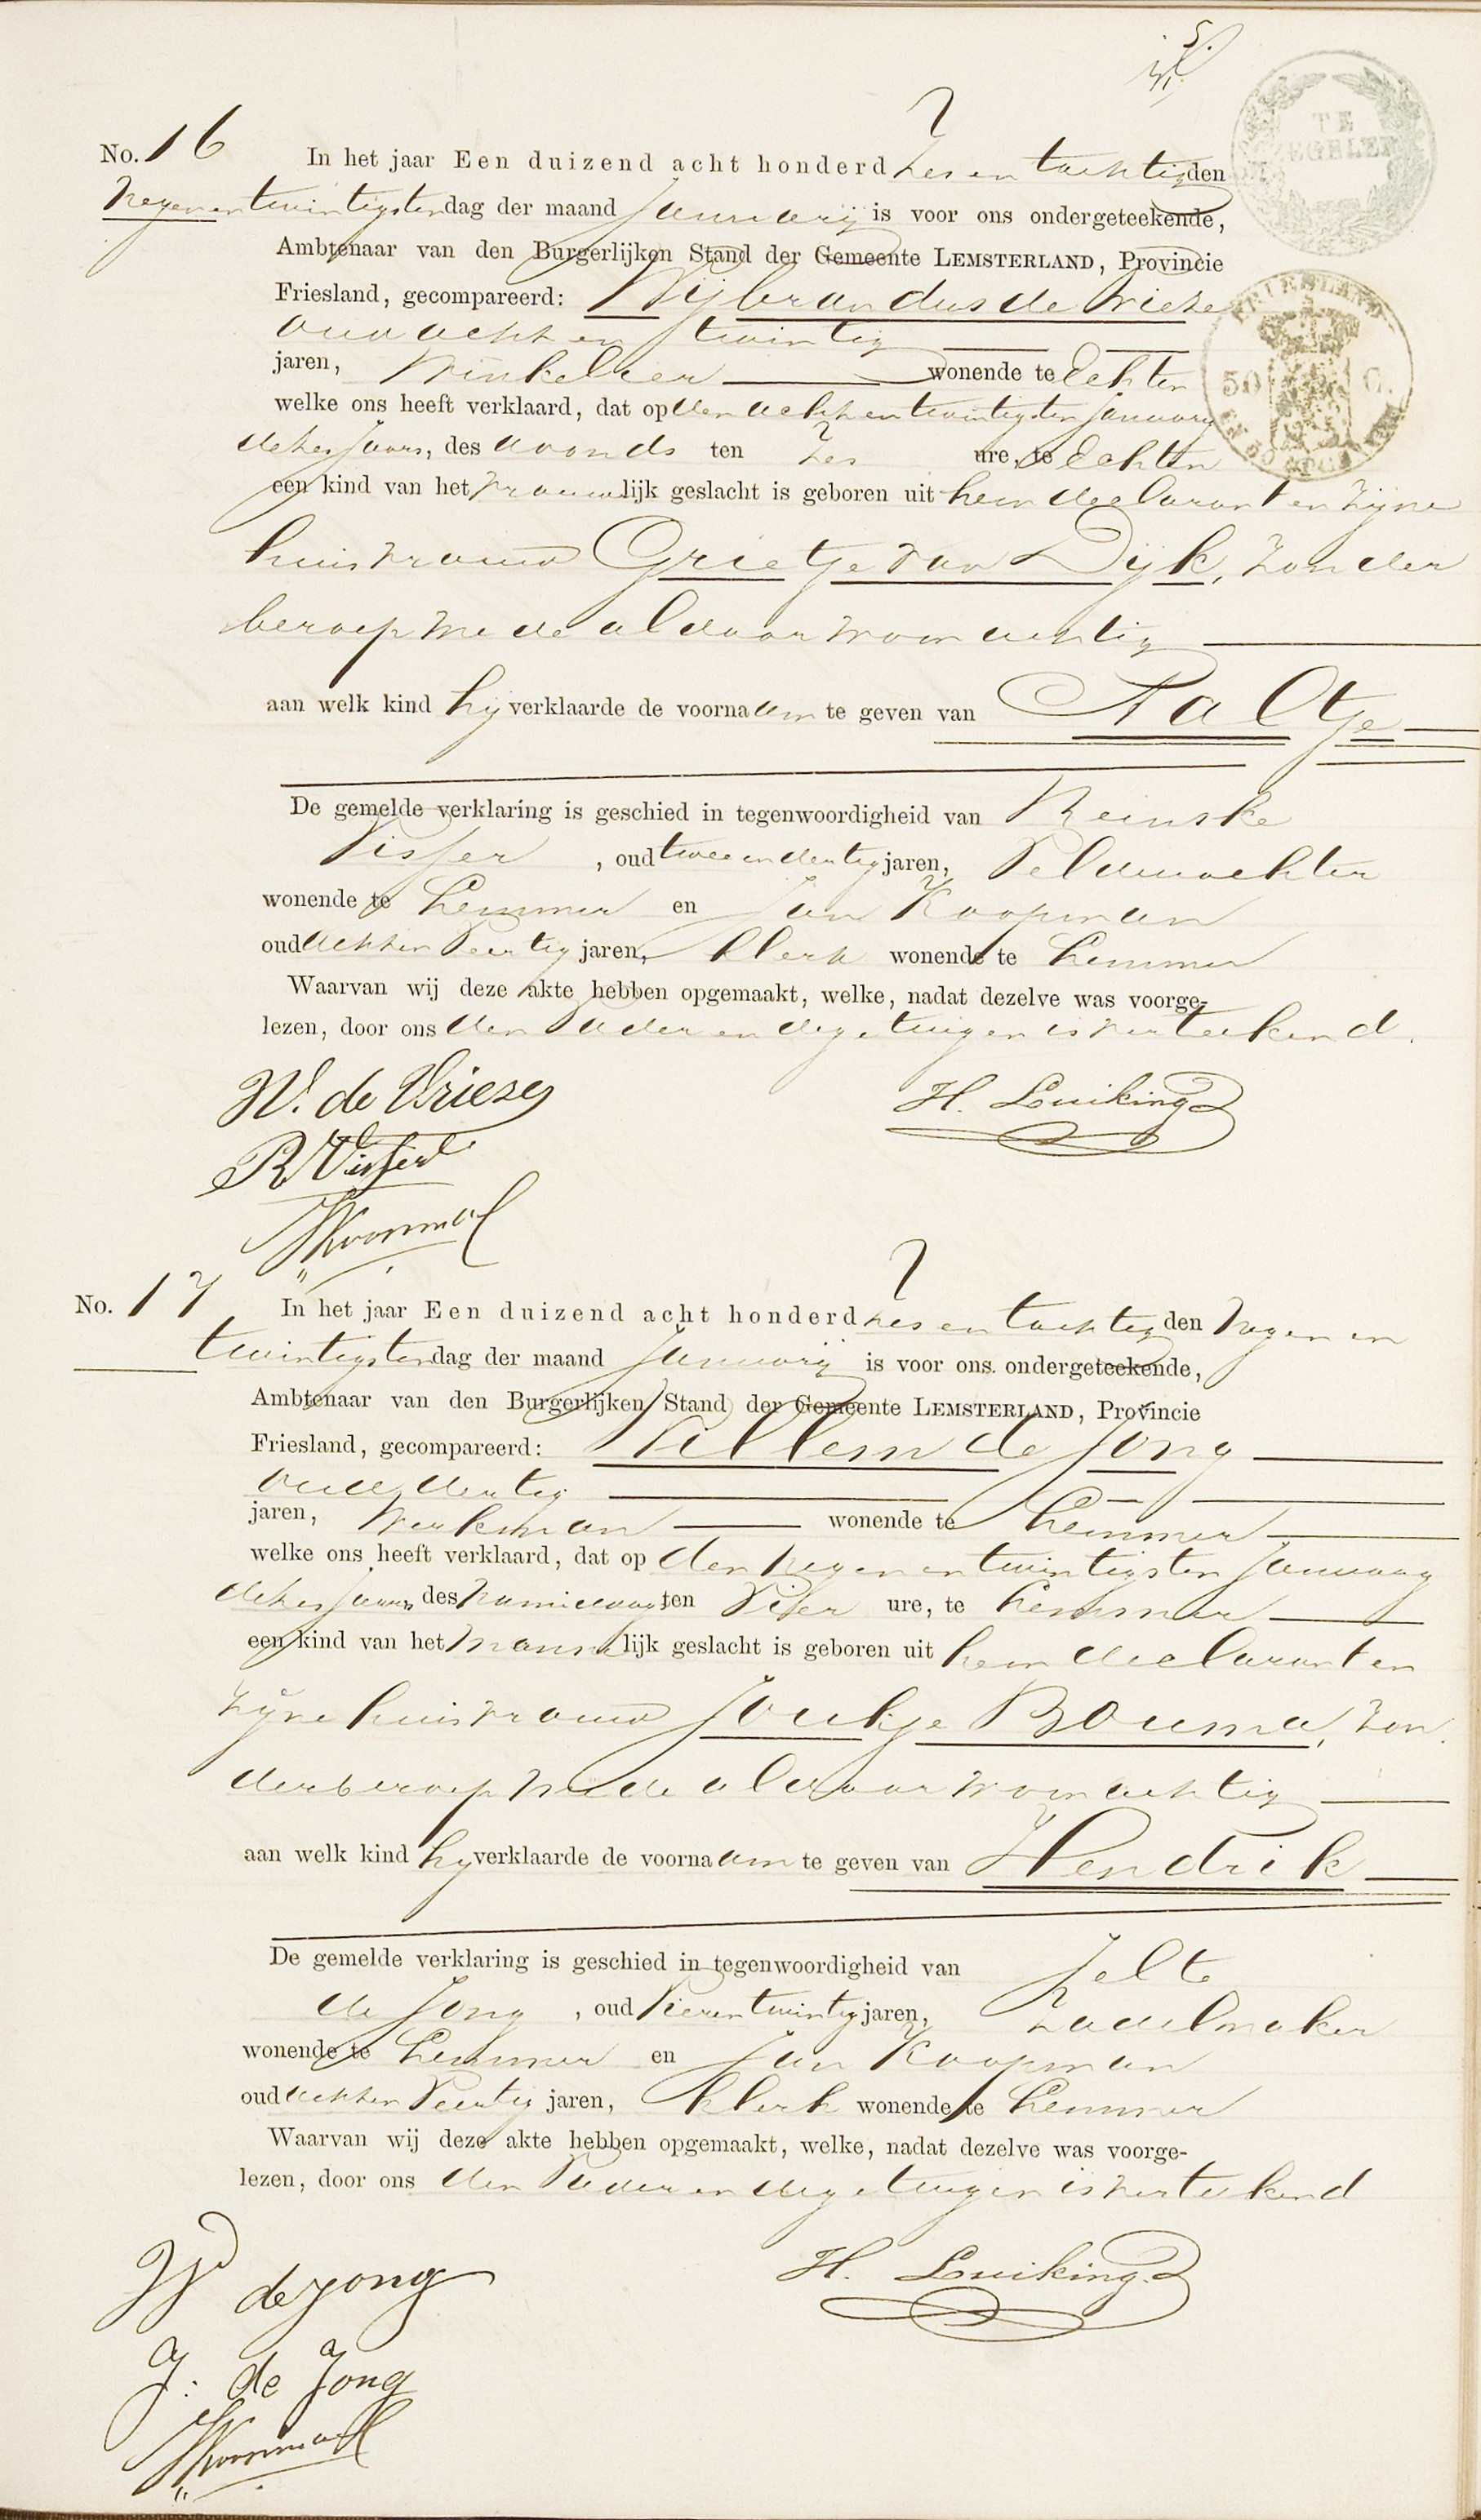 5.
TE
ZEGELEN
No. 16 In het jaar Een duizend acht honderd zes en tachtig den
negen en twintigsten dag der maand January is voor ons ondergeteekende,
Ambtenaar van den Burgerlijken Stand der Gemeente LEMSTERLAND, Provincie
Friesland, gecompareerd: Wijbrandus de Vrieze
oud acht en twintig
jaren, Winkelier wonende te Echten
welke ons heeft verklaard, dat op den acht en twintigsten January
dezes jaars, des avonds ten zes ure, te Echten
een kind van het vrouwelijk geslacht is geboren uit hem declarant en zijne
huisvrouw Grietje van Dijk, zonder
beroep mede aldaar woonachtig
aan welk kind hij verklaarde de voornaam te geven van Aaltje
De gemelde verklaring is geschied in tegenwoordigheid van Reinske
Visser, oud twee en dertig jaren, Veldwachter
wonende te Lemmer en Jan Koopman
oud acht en veertig jaren, klerk wonende te Lemmer
Waarvan wij deze akte hebben opgemaakt, welke, nadat dezelve was voorge-
lezen, door ons den Vader en de getuigen is verteekend.
W. de Vrieze H. Luiking
R Visser
JKoopman
No. 17 In het jaar Een duizend acht honderd zes en tachtig den negen en
twintigsten dag der maand January is voor ons ondergeteekende,
Ambtenaar van den Burgerlijken Stand der Gemeente LEMSTERLAND, Provincie
Friesland, gecompareerd: Willem de Jong
oud dertig
jaren, Werkman wonende te Lemmer
welke ons heeft verklaard, dat op den negen en twintigsten January
dezes jaars des namiddags ten vijf ure, te Lemmer
een kind van het mannelijk geslacht is geboren uit hem declarant en
zijne huisvrouw Joukje Bouma, zon
der beroep mede aldaar woonachtig
aan welk kind hij verklaarde de voornaam te geven van Hendrik
De gemelde verklaring is geschied in tegenwoordigheid van Jelte
de Jong, oud vier en twintig jaren, zadelmaker
wonende te Lemmer en Jan Koopman
oud acht en veertig jaren, klerk wonende te Lemmer
Waarvan wij deze akte hebben opgemaakt, welke, nadat dezelve was voorge-
lezen, door ons den Vader en de getuigen is verteekend
W de Jong H. Luiking
J: de Jong
JKoopman